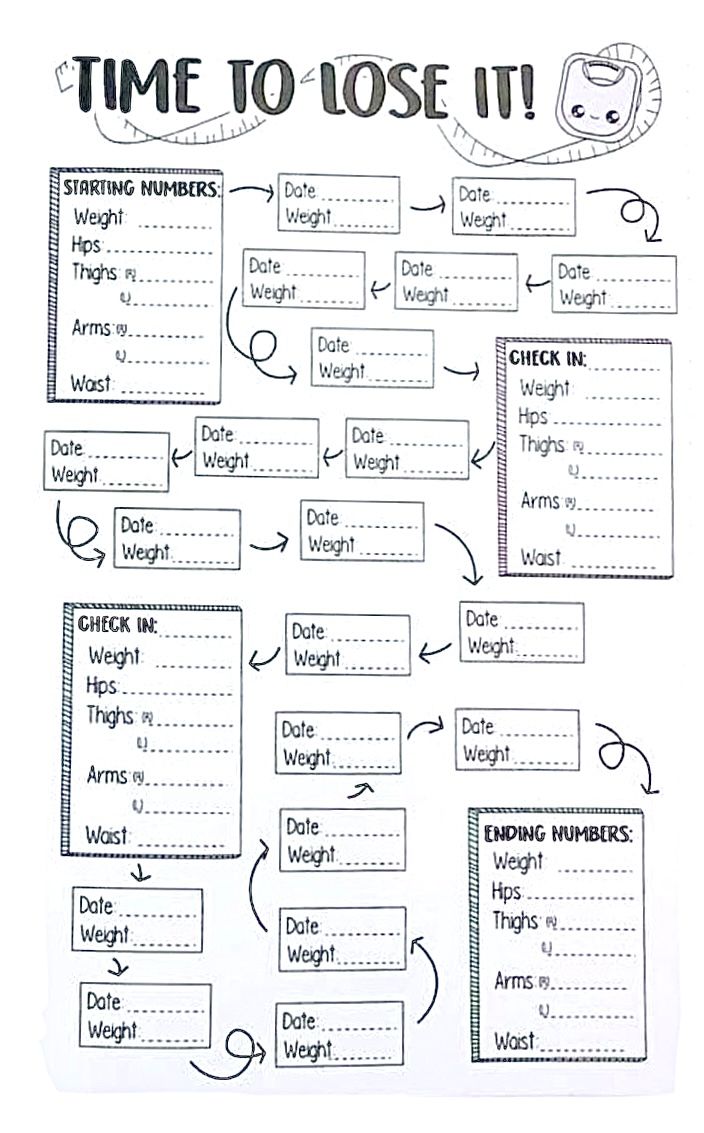 TIME TO LOSE IT!
STARTING NUMBERS:
Weight:
Hips:
Thighs: (R)
(L)
Arms: (R)
(L)
Waist:
Date:
Weight:
Date:
Weight:
Date:
Weight:
Date:
Weight:
Date:
Weight:
Date:
Weight:
CHECK IN:
Weight:
Hips:
Thighs: (R)
(L)
Arms: (R)
(L)
Waist:
Date:
Weight:
Date:
Weight:
Date:
Weight:
Date:
Weight:
Date:
Weight:
Date:
Weight:
Date:
Weight:
CHECK IN:
Weight:
Hips:
Thighs: (R)
(L)
Arms: (R)
(L)
Waist:
Date:
Weight:
Date:
Weight:
Date:
Weight:
Date:
Weight:
Date:
Weight:
Date:
Weight:
Date:
Weight:
ENDING NUMBERS:
Weight:
Hips:
Thighs: (R)
(L)
Arms: (R)
(L)
Waist: